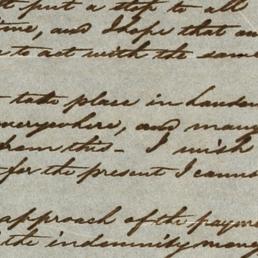 put a stop to all
time, and I hope that an
to act with the same
take place in London
everywhere, and many
from this - I wish
for the present I canno
approach of the payme
the indemnity money